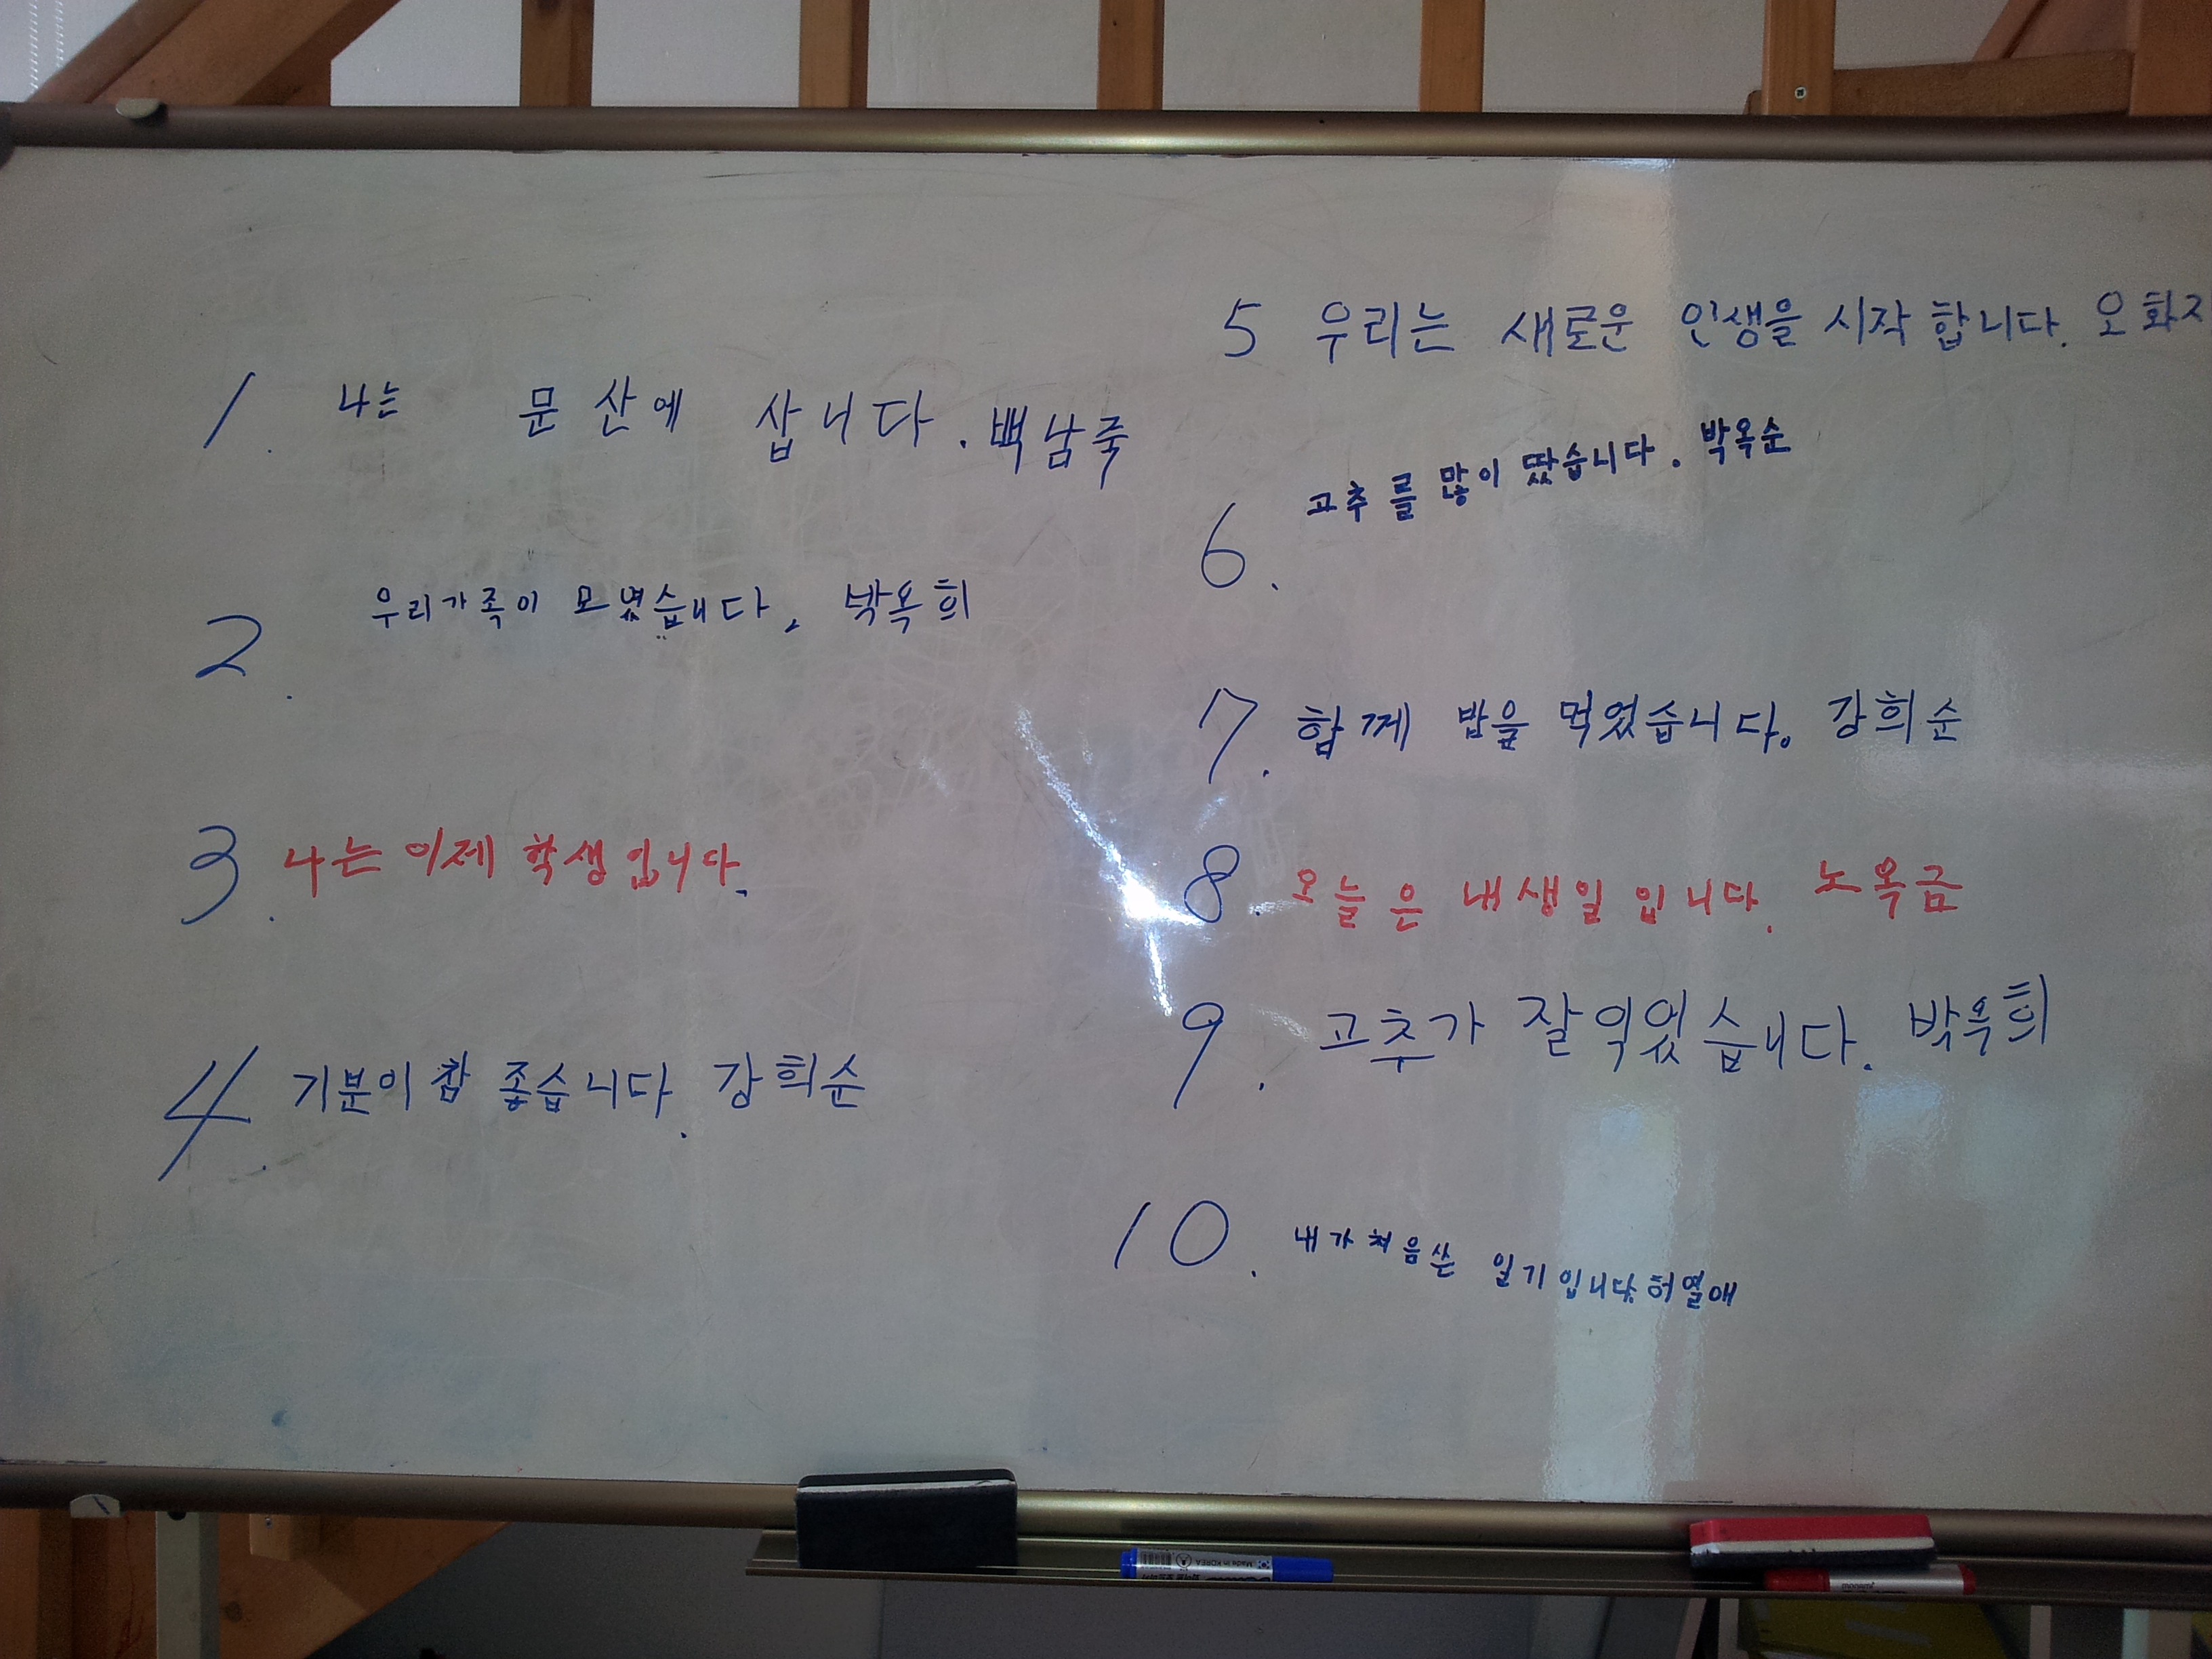 1. 나는 문산에 삽니다. 백남죽
2. 우리가족이 모였습니다. 박옥희
3. 나는 이제 학생입니다.
4. 기분이 참 좋습니다. 강희순
5 우리는 새로운 인생을 시작합니다. 오화
6. 고추를 많이 땄습니다. 박옥순
7. 함께 밥을 먹었습니다. 강희순
8. 오늘은 내생일입니다. 노옥금
9. 고추가 잘익었습니다. 박옥희
10. 내가처음쓴 일기입니다. 허열애
Made in KOREA
monami